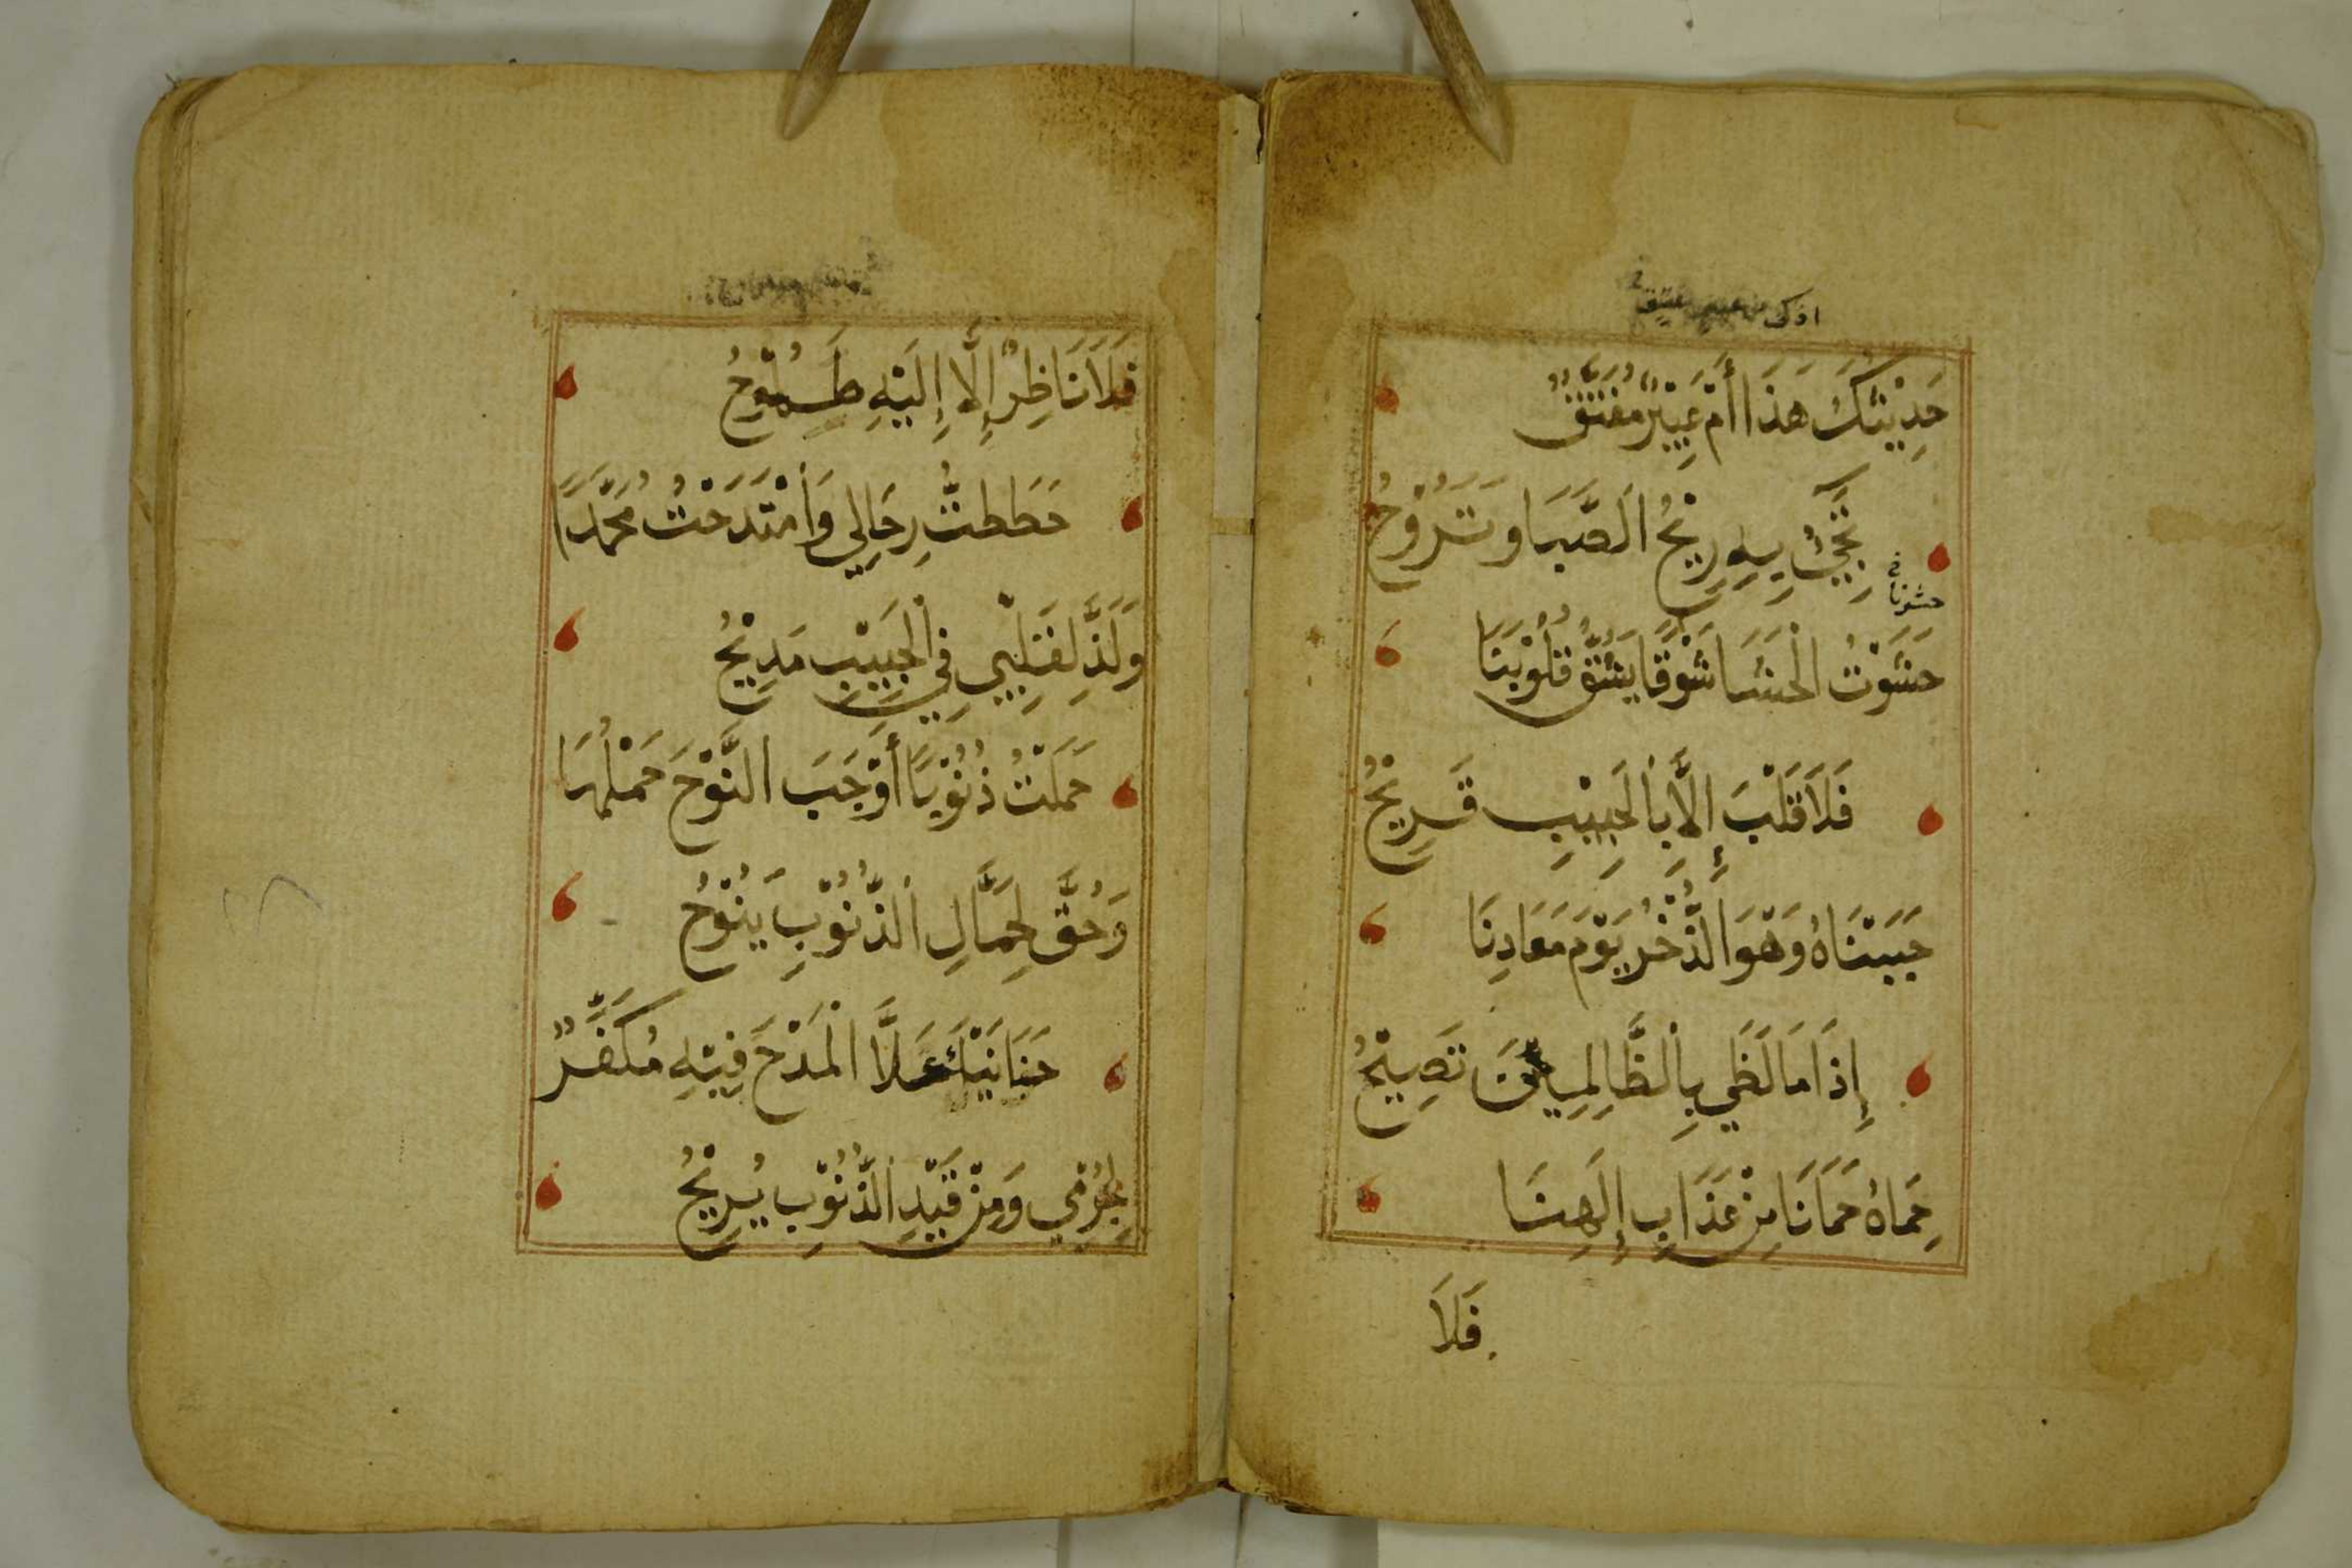 اذكى عبير عتيق
حَدِيْثُكَ هَذَا أَمْ عَبِيْرٌ مُفَتَّقٌ
تَجِيْءُ بِهِ رِيْحُ الصَّبَا وَتَرُوْحُ
حشونا
حَشَوْتُ الْحَشَا شَوْقًا يَشُقُّ قُلُوْبَنَا
فَلَا قَلْبَ إِلَّا بِالْحَبِيْبِ قَرِيْحُ
حَبَبْنَاهُ وَهْوَ الذُّخْرُ يَوْمَ مَعَادِنَا
إِذَا مَا لَظَى بِالظَّالِمِيْنَ تَصِيْحُ
حِمَاهُ حَمَانَا مِنْ عَذَابِ إِلَهِنَا
فَلَا
فَلَا نَاظِرٌ إِلَّا إِلَيْهِ طَمُوْحُ
حَطَطتُّ رِحَالِي وَامْتَدَحْتُ مُحَمَّدًا
وَلَذَّ لِقَلْبِي فِي الْحَبِيْبِ مَدِيْحُ
حَمَلْتُ ذُنُوْبًا أَوْجَبَ النَّوْحَ حَمْلُهَا
وَحُقَّ لِحَمَّالِ الذُّنُوْبِ يَنُوْحُ
حَنَانَيْكَ عَلَّ الْمَدْحَ فِيْهِ مُكَفِّرٌ
لِجُرْمِي وَمِنْ قَيْدِ الذُّنُوْبِ يُرِيْحُ